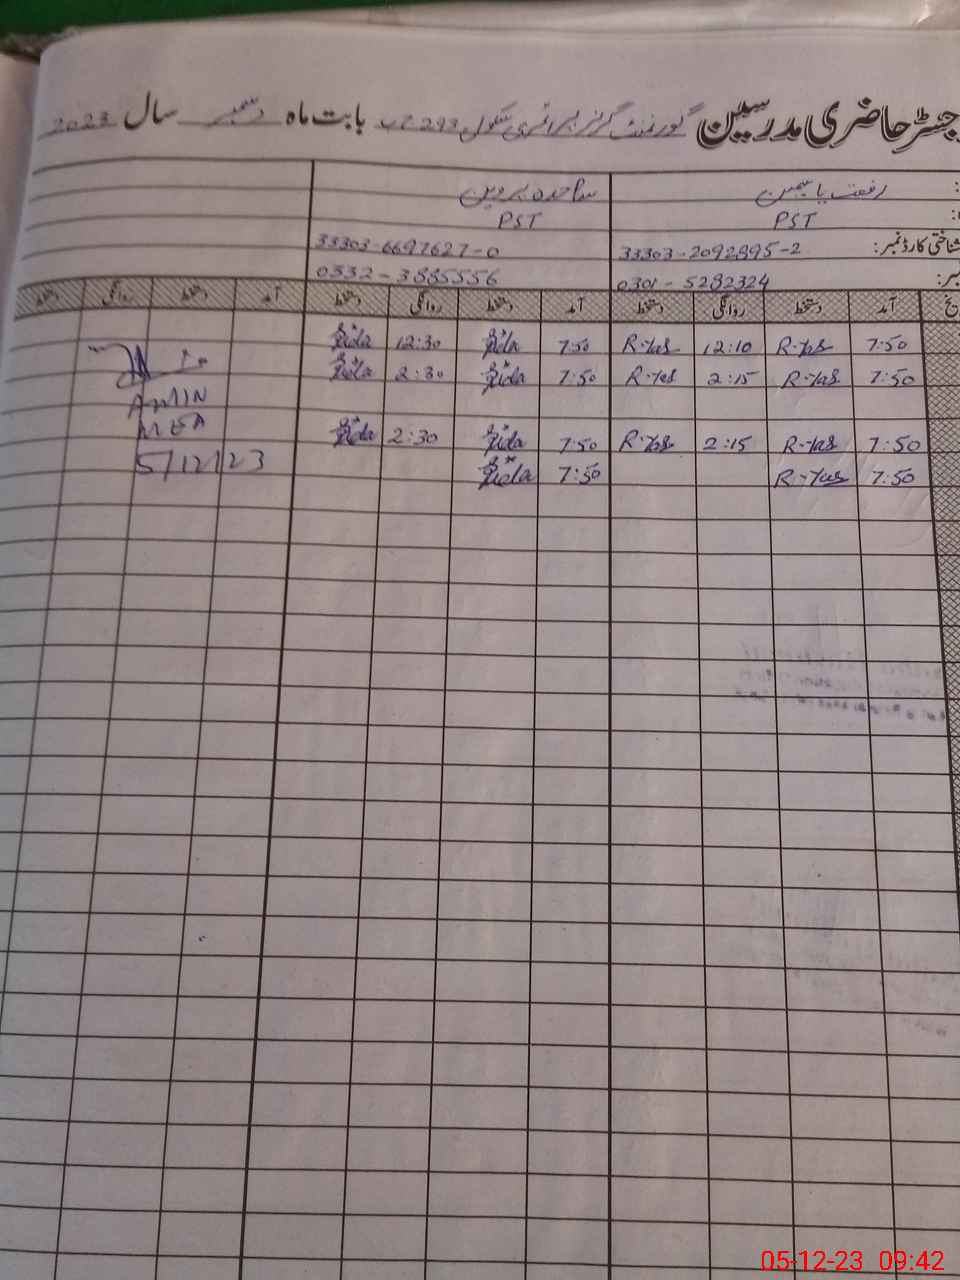 رجسٹر حاضری مدرسین گورنمنٹ گرلز پرائمری سکول 293 بابت ماہ دسمبر سال 2023
رفعت یاسمین ساجدہ پروین
PST PST
شناختی کارڈ نمبر: 33303-2092895-2 33303-6697627-0
0301-5282324 0332-3885556
آمد دستخط روانگی دستخط آمد دستخط روانگی دستخط آمد دستخط روانگی دستخط
7:50 R-Yas 12:10 R-Yas 7:50 12:30
7:50 R-Yas 2:15 R-Yas 7:50 2:30
AMIN
MEA
7:50 R-Yas 2:15 R-Yas 7:50 2:30
7:50 R-Yas 7:50
5/12/23
05-12-23 09:42